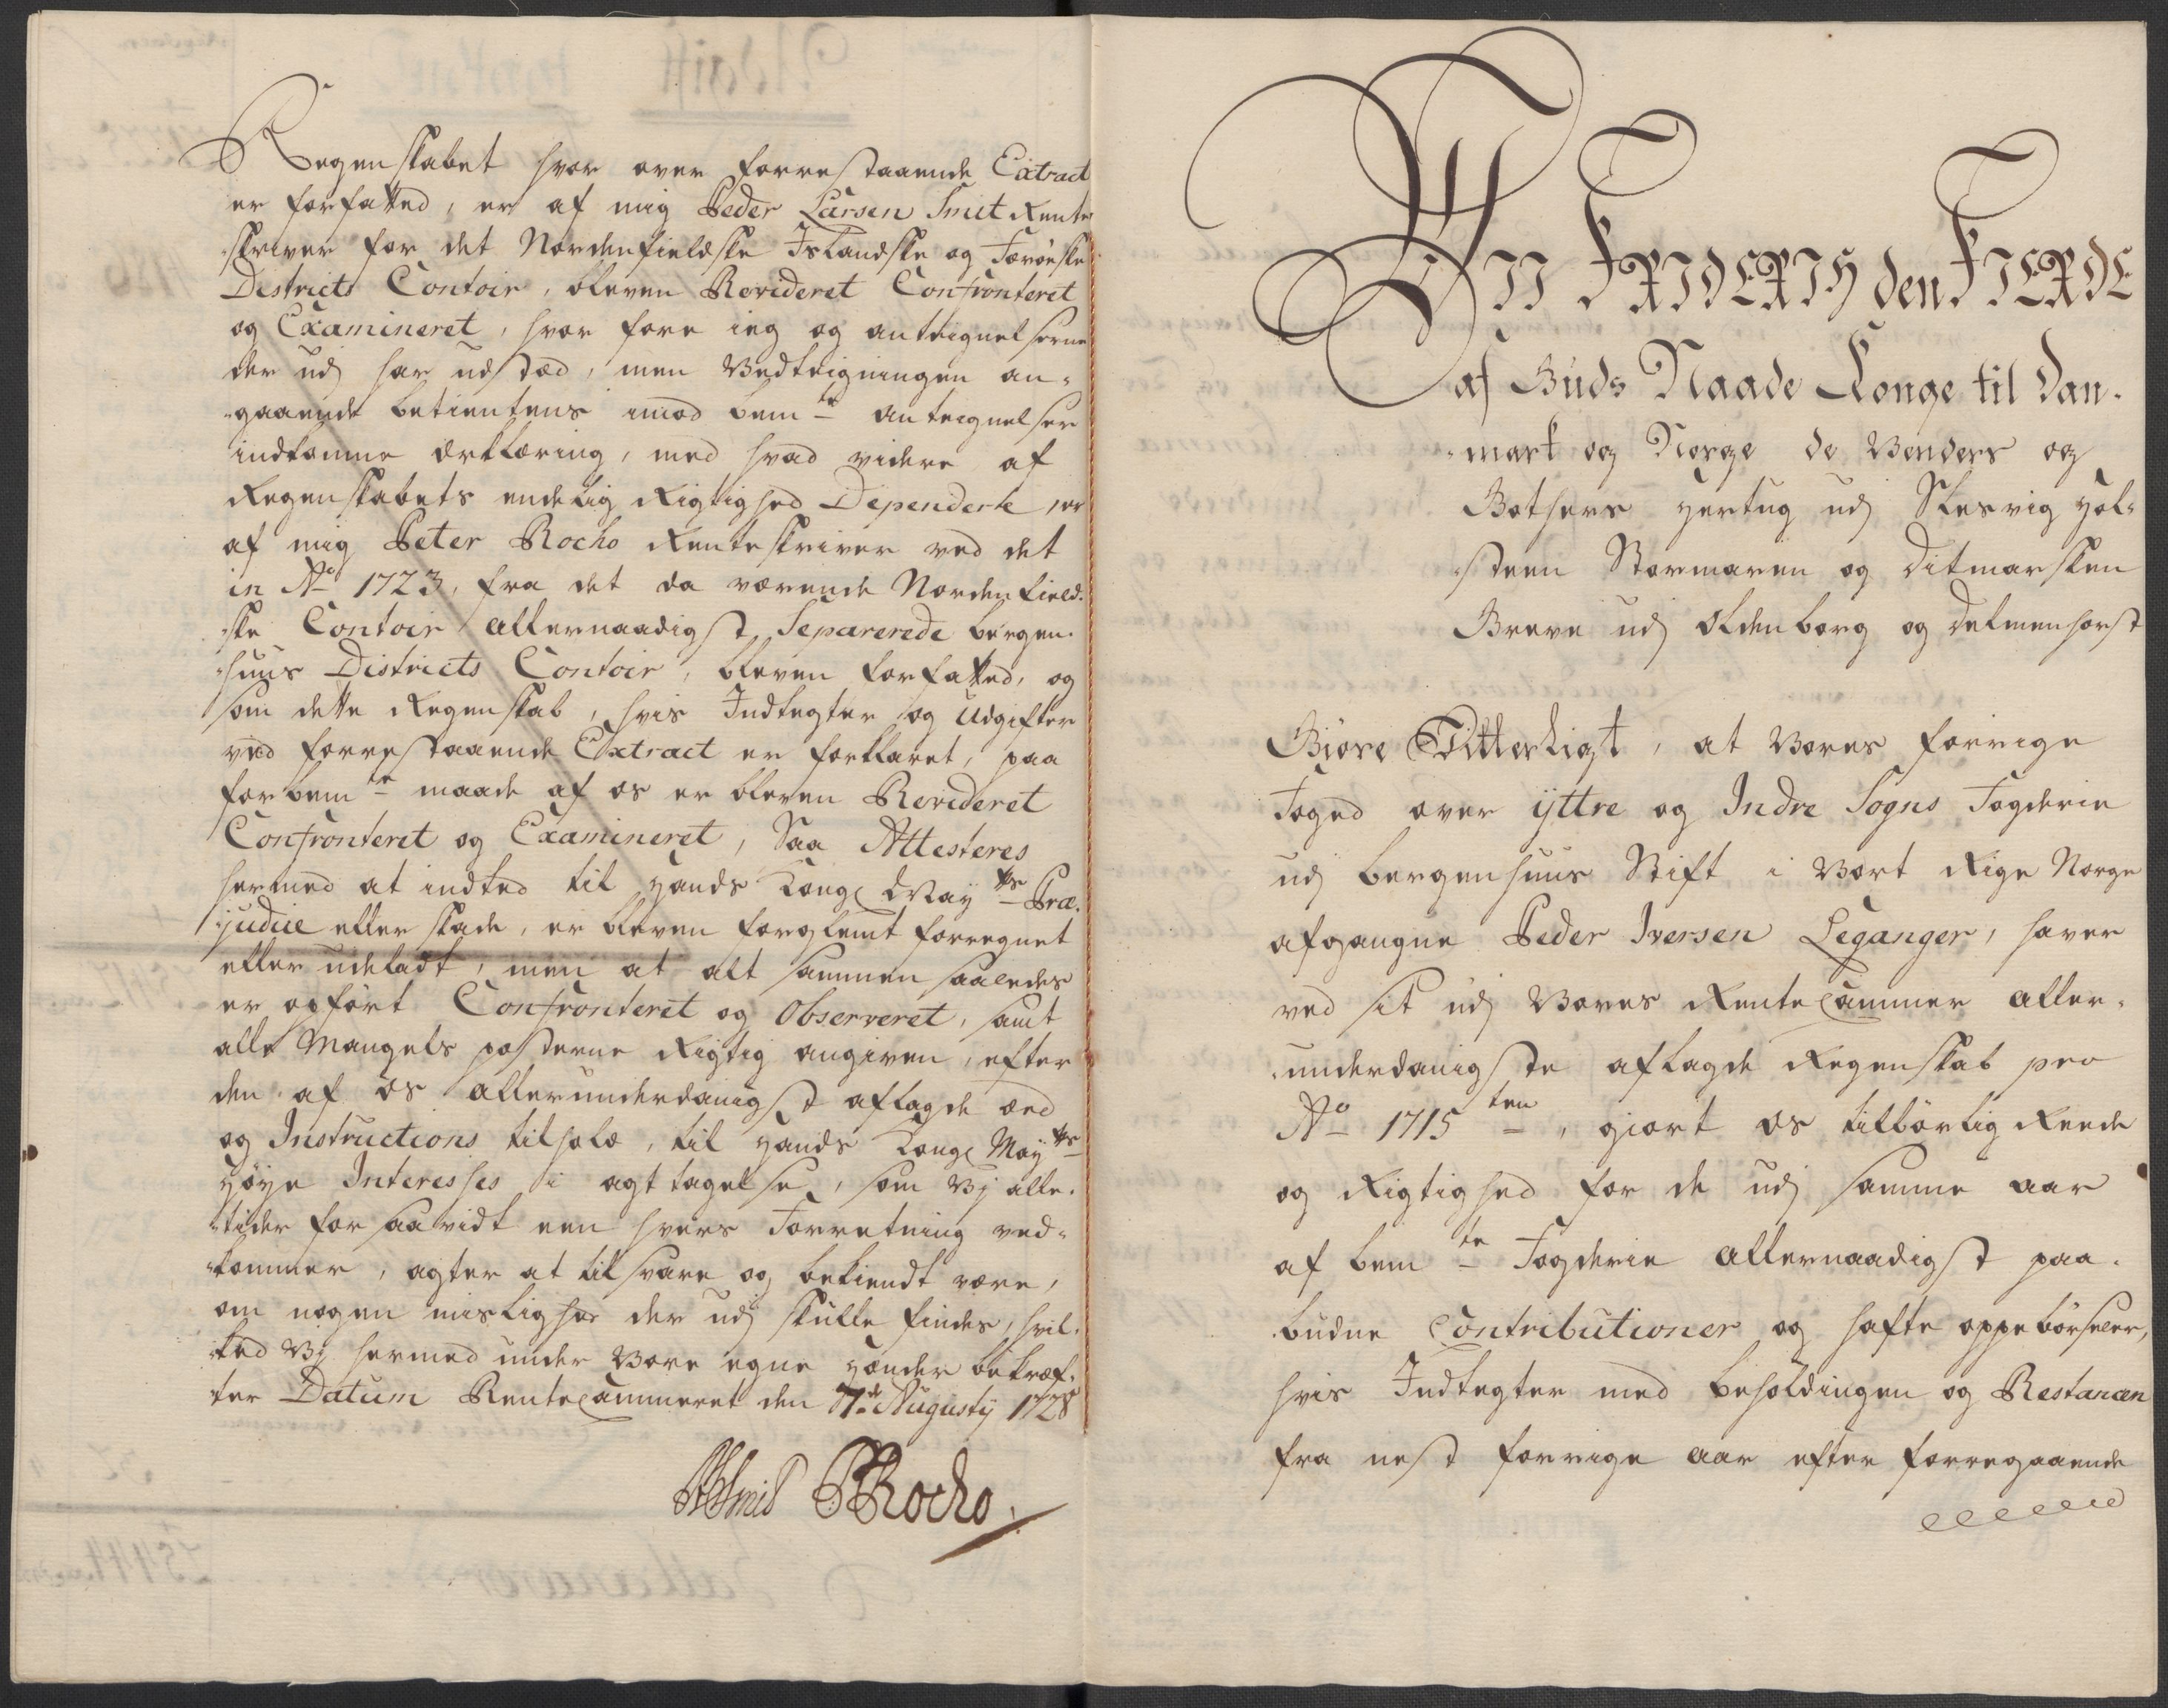 Regenskabet hvor over forrestaaende Extract
er forfatted, er af mig Peder Larsen Smit Rente
skriver for det Nordenfieldske Islandske og Færöeske
Districts Contoir, bleven Revideret Confronteret
og Examineret, hvor fore ieg og antegnelserne
der udj har udstæd, men Vedtegningen an-
gaaende betientens imod bemte antegnelser
indkomne Erklæring, med hvad videre af
Regenskabets endelig Rigtighed Dependerte, er
af mig Peter Rocho Renteskriver ved det
in Ao 1723, fra det da værende Nordenfield-
ske Contoir allernaadigst Separerede bergen-
huus Districts Contoir, bleven forfatted, og
som dette Regenskab, hvis Indtegter og Udgifter
ved forrestaaende Extract er forklaret, paa
forbemte maade af os er bleven Revideret
Confronteret og Examineret, Saa Attesteres
hermed at indted til Hands Kongl May:ts Præ-
judice eller skade, er bleven forglemt forregnet
eller udeladt, men at alt sammen saaledes
er opfört Confronteret og Observeret, samt
alle Mangels posterne Rigtig angiven, efter
den af os allerunderdanigst aflagde æed
og Instructions tilhold, til Hands Kongl May:ts
Höye Interesses i agt tagelse, som Vj alle-
tider for saavidt een hvers Forretning ved-
kommer, agter at tilsvare og bekiendt være,
om nogen mislighed der udj skulle findes, hvil-
ked Vj hermed under Vore egne Hænder bekræf-
ter Datum RenteCammeret den 7de Augustij 1728
PLSmit PRocho.
WII FRIDERICH den FIERDE
af Guds Naade Konge til Dan-
mark og Norge de Venders og
Gothers Hertug udj Slesvig Hol-
steen Stormaren og Ditmarsken
Greve udj Oldenborg og Delmenhorst
Giöre Vitterligt, at Vores forrige
Foged over ÿttre og Indre Sogns Fogderie
udj bergenhuus Stift i Vort Rige Norge
afgangne Peder Iversen Leganger, haver
ved sit udj Vores RenteCammer aller-
underdanigste aflagde Regenskab pro
Ao 1715ten, giort os tilbörlig Reede
og Rigtighed for de udj samme aar
af bemte Fogderie allernaadigst paa-
budne Contributioner og hafte oppebörseler,
hvis Indtegter med beholdingen og Restancen
fra nest forrige aar efter forregaaende